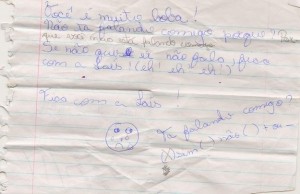 Você é muito boba!
Não tá falando comigo porque? Por
que você não está falando comigo
Se não quiser ei não falo, fico
com a Lais! (eh! eh eh!)
Fica com a Lais!
Tá falando comigo?
(x)sim ( ) não ( ) + ou -